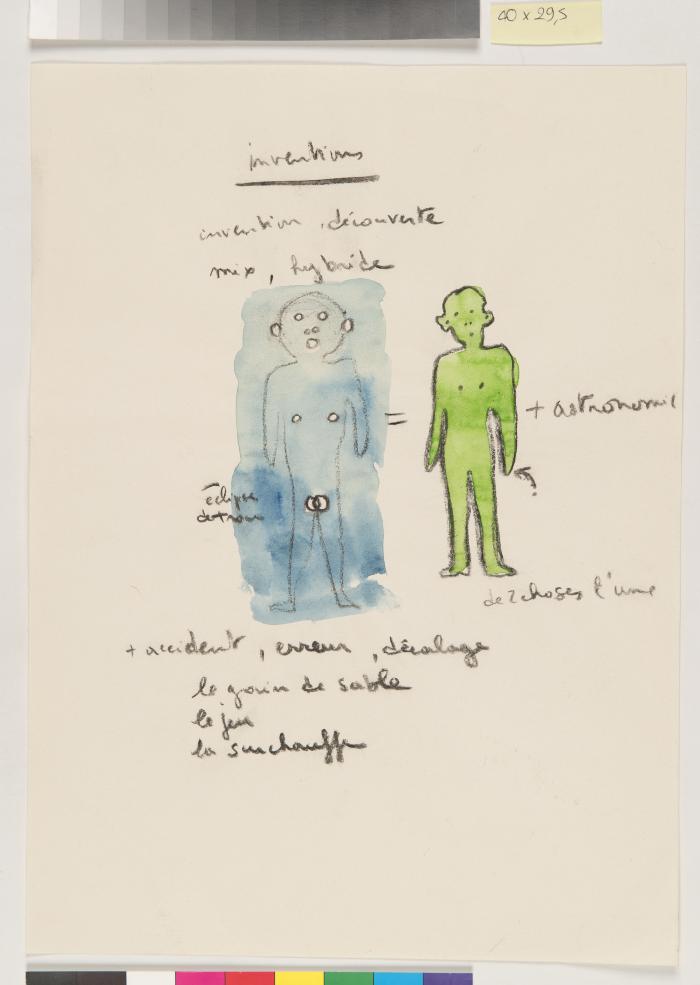 40 x 29,5
inventions
invention, découverte
mix, hybride
=
+ astronomie
éclipse
de 2 choses l'une
+ accident, erreur, décalage
le grain de sable
le jeu
la surchauffe